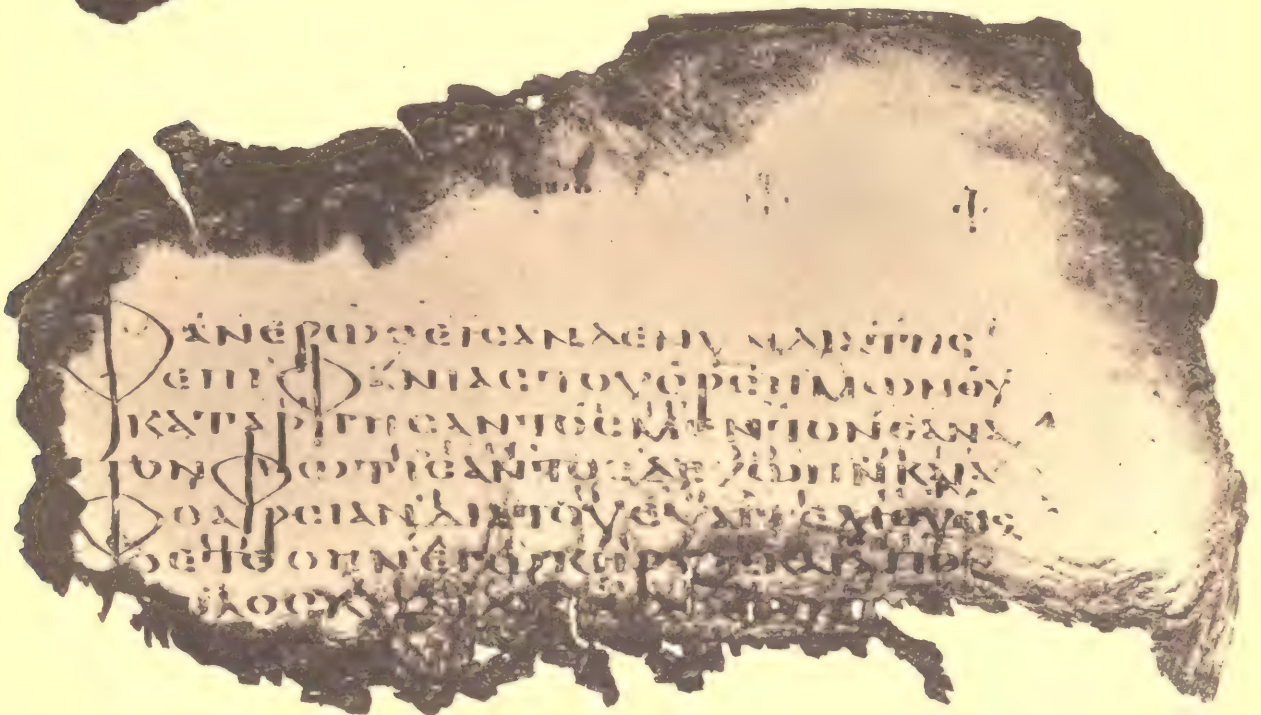 ΦΑΝΕΡΩΘΕΙCΑΝ ΔΕ ΝΥΝ ΔΙΑ ΤΗC
ΕΠΙΦΑΝΙΑC ΤΟΥ CΡC ΗΜΩΝ ΘΥ
ΚΑΤΑΡΓΗCΑΝΤΟC ΜΕΝ ΤΟΝ ΘΑΝΑ
ΤΟΝ ΦΩΤΙCΑΝΤΟC ΔΕ ΖΩΗΝ ΚΑΙ Α
ΦΘΑΡCΙΑΝ ΔΙΑ ΤΟΥ ΕΥΑΓΓΕΛΙΟΥ ΕΙC
Ο ΕΤΕΘΗΝ ΕΓΩ ΚΗΡΥΞ ΚΑΙ ΑΠΟ